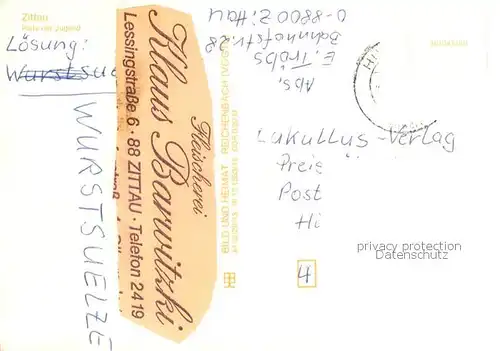 Zittau
Platz der Jugend
Lösung:
Wurstsu
WURSTSUELZE
Fleischerei
Klaus Barwitzki
Lessingstraße 6 · 88 ZITTAU · Telefon 2419
BILD UND HEIMAT
REICHENBACH (VOGTL)
Abs.
E. Tröbs
Bahnhofstr. 28
O-8800 Zittau
Lukullus-Verlag
Preis
Post
Hi
4
privacy protection
Datenschutz